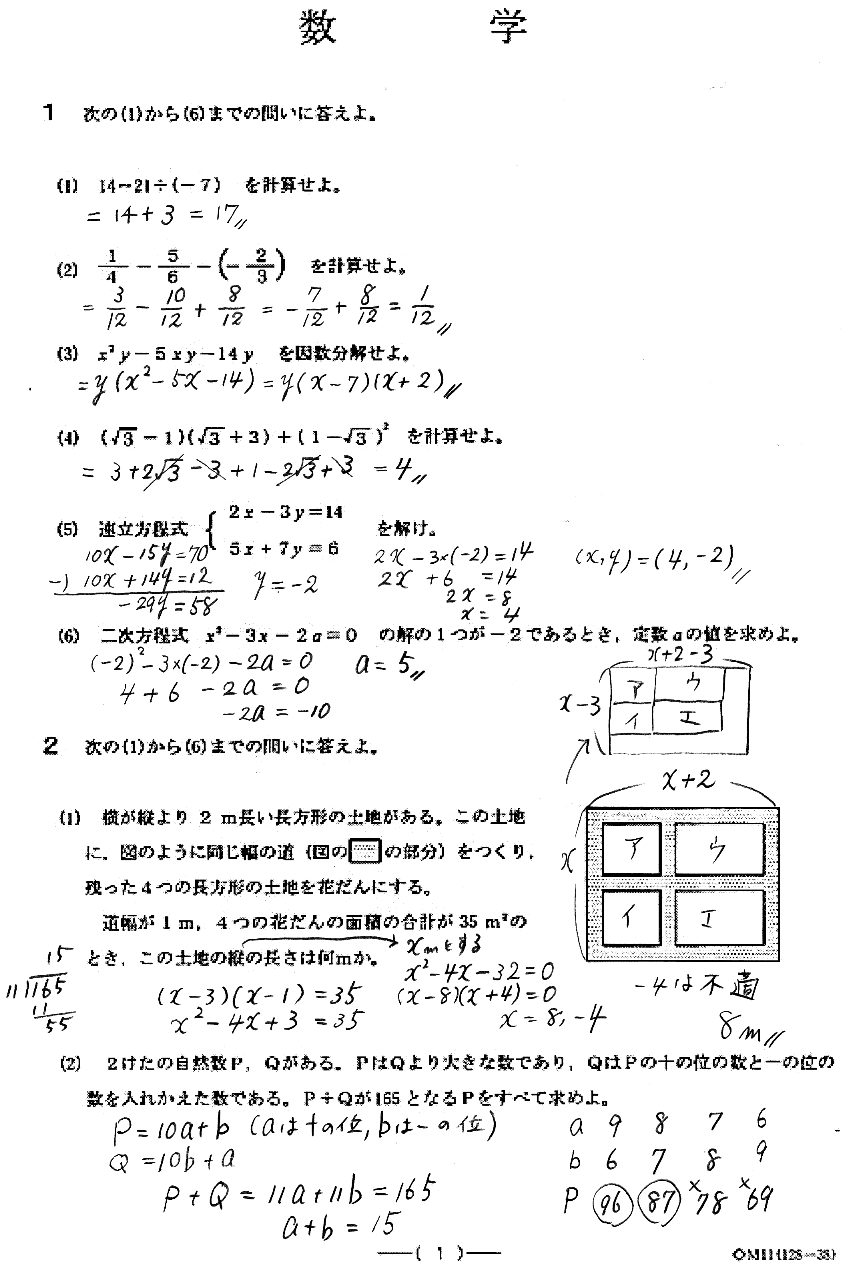 数 学
1 次の(1)から(6)までの問いに答えよ。
(1) 14-21÷(-7) を計算せよ。
= 14+3 = 17〃
(2) 1/4 - 5/6 - (-2/3) を計算せよ。
= 3/12 - 10/12 + 8/12 = -7/12 + 8/12 = 1/12〃
(3) x²y-5xy-14y を因数分解せよ。
=y(x²-5x-14)=y(x-7)(x+2)〃
(4) (√3-1)(√3+3)+(1-√3)² を計算せよ。
= 3+2√3-3+1-2√3+3 =4〃
(5) 連立方程式 { 2x-3y=14
5x+7y=6 を解け。
10x-15y=70
-) 10x+14y=12
-29y=58
y=-2
2x-3×(-2)=14
2x +6 =14
2x =8
x= 4
(x,y)=(4,-2)〃
(6) 二次方程式 x²-3x-2a=0 の解の1つが-2であるとき,定数aの値を求めよ。
(-2)²-3×(-2)-2a=0 a=5〃
4+6 -2a = 0
-2a = -10
x+2-3
x-3
ア ウ
イ エ
2 次の(1)から(6)までの問いに答えよ。
x+2
x
ア ウ
イ エ
(1) 横が縦より 2 m長い長方形の土地がある。この土地
に,図のように同じ幅の道(図の の部分)をつくり,
残った4つの長方形の土地を花だんにする。
道幅が1m,4つの花だんの面積の合計が35m²の
とき,この土地の縦の長さは何mか。
xmとする
x²-4x-32=0
(x-3)(x-1)=35 (x-8)(x+4)=0
x²-4x+3 =35 x=8,-4
-4は不適
8m〃
15
11)165
11
55
(2) 2けたの自然数P,Qがある。PはQより大きな数であり,QはPの十の位の数と一の位の
数を入れかえた数である。P+Qが165となるPをすべて求めよ。
P=10a+b (aは十の位,bは一の位)
Q=10b+a
P+Q=11a+11b=165
a+b=15
a 9 8 7 6
b 6 7 8 9
P 96 87 ×78 ×69
—( 1 )—
◇M11(128-38)